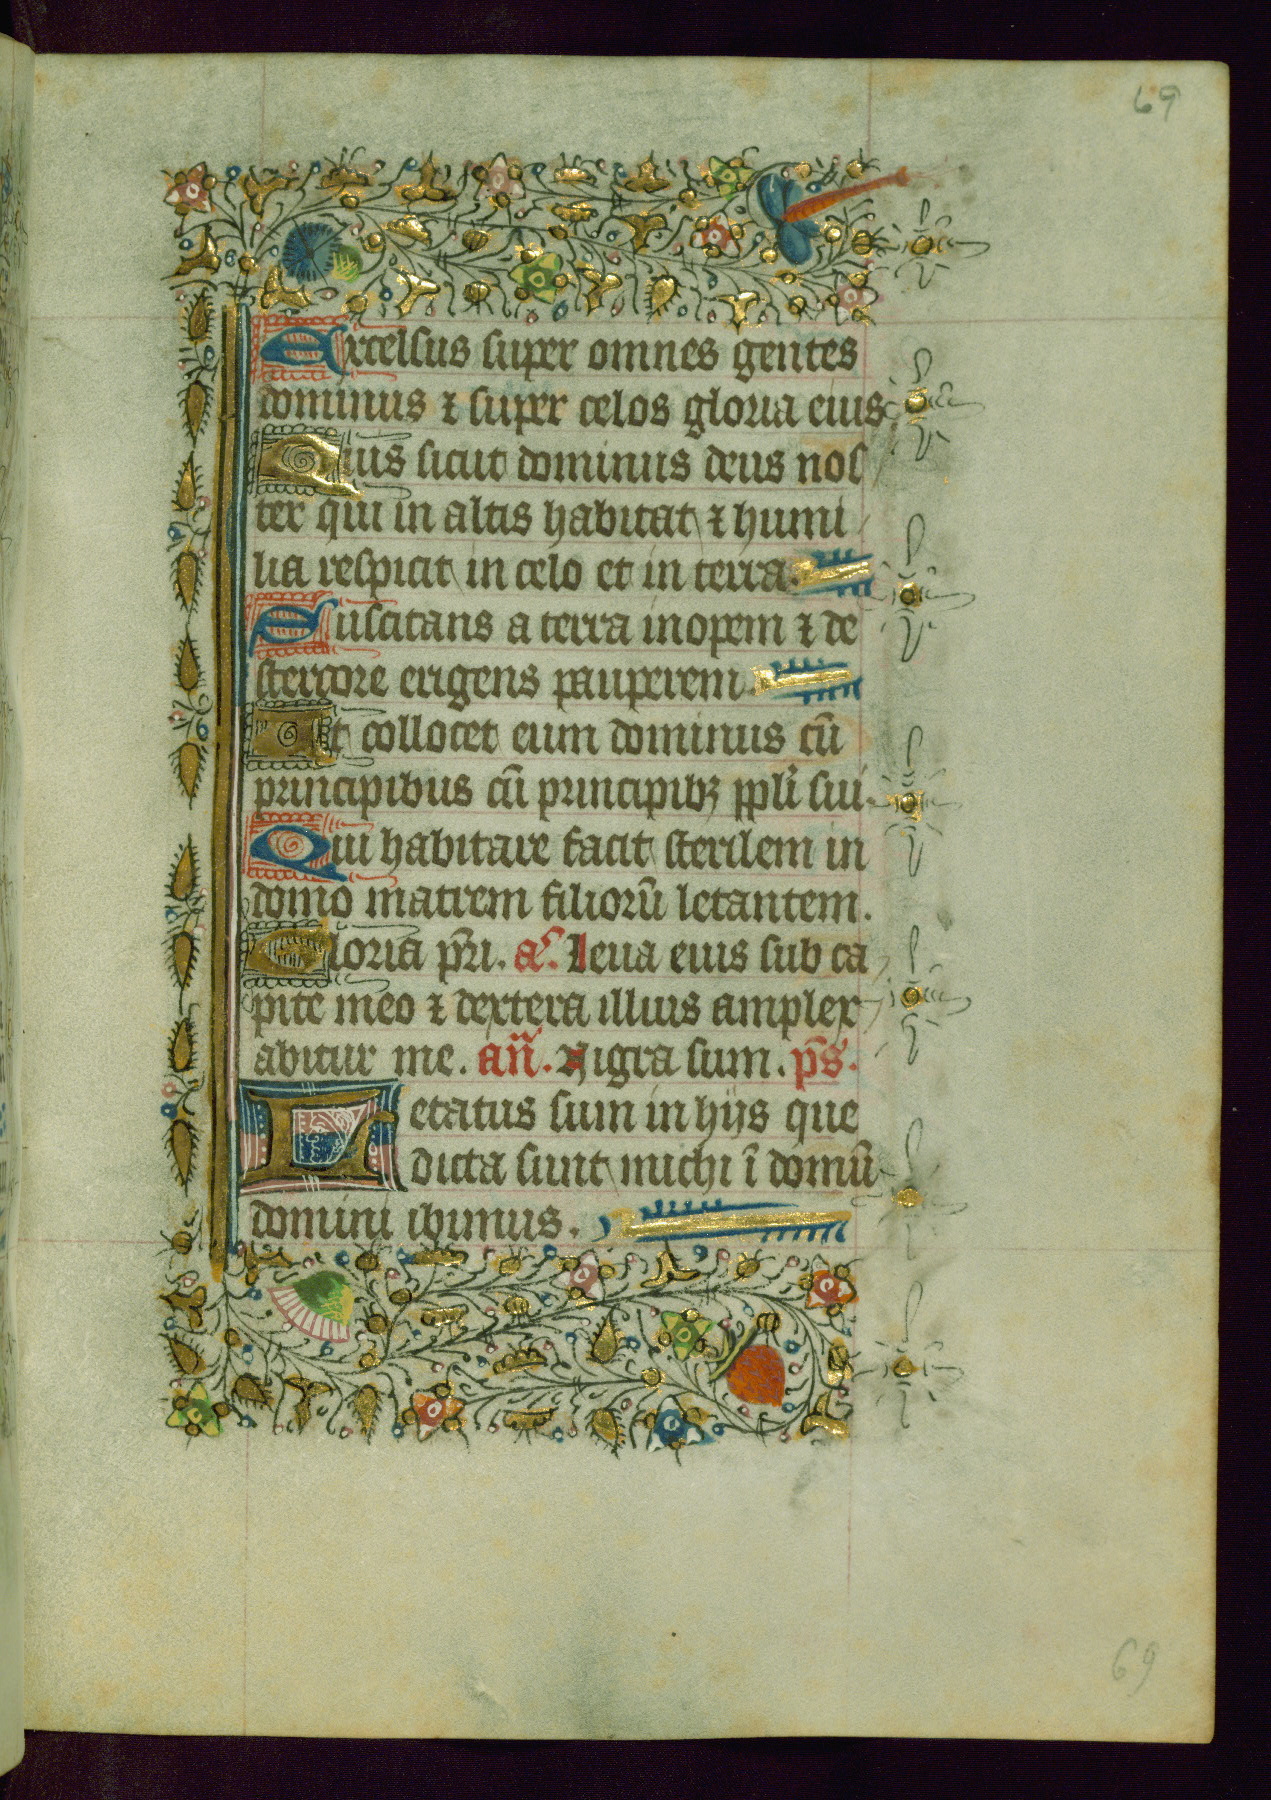 69
Excelsus super omnes gentes
dominus ⁊ super celos gloria eius.
Quis sicut dominus deus nos
ter qui in altis habitat ⁊ humi
lia respicit in celo et in terra.
Suscitans a terra inopem ⁊ de
stercore erigens pauperem.
Et collocet eum dominus cū
principibus cū principibꝫ ppli sui.
Qui habitare facit sterilem in
domo matrem filiorū letantem.
Gloria pr̄i. a͛. Leua eius sub ca
pite meo ⁊ dextera illius amplex
abitur me. an̄. Nigra sum. ps̄.
Letatus sum in hijs que
dicta sunt michi ī domū
domini ibimus.
69